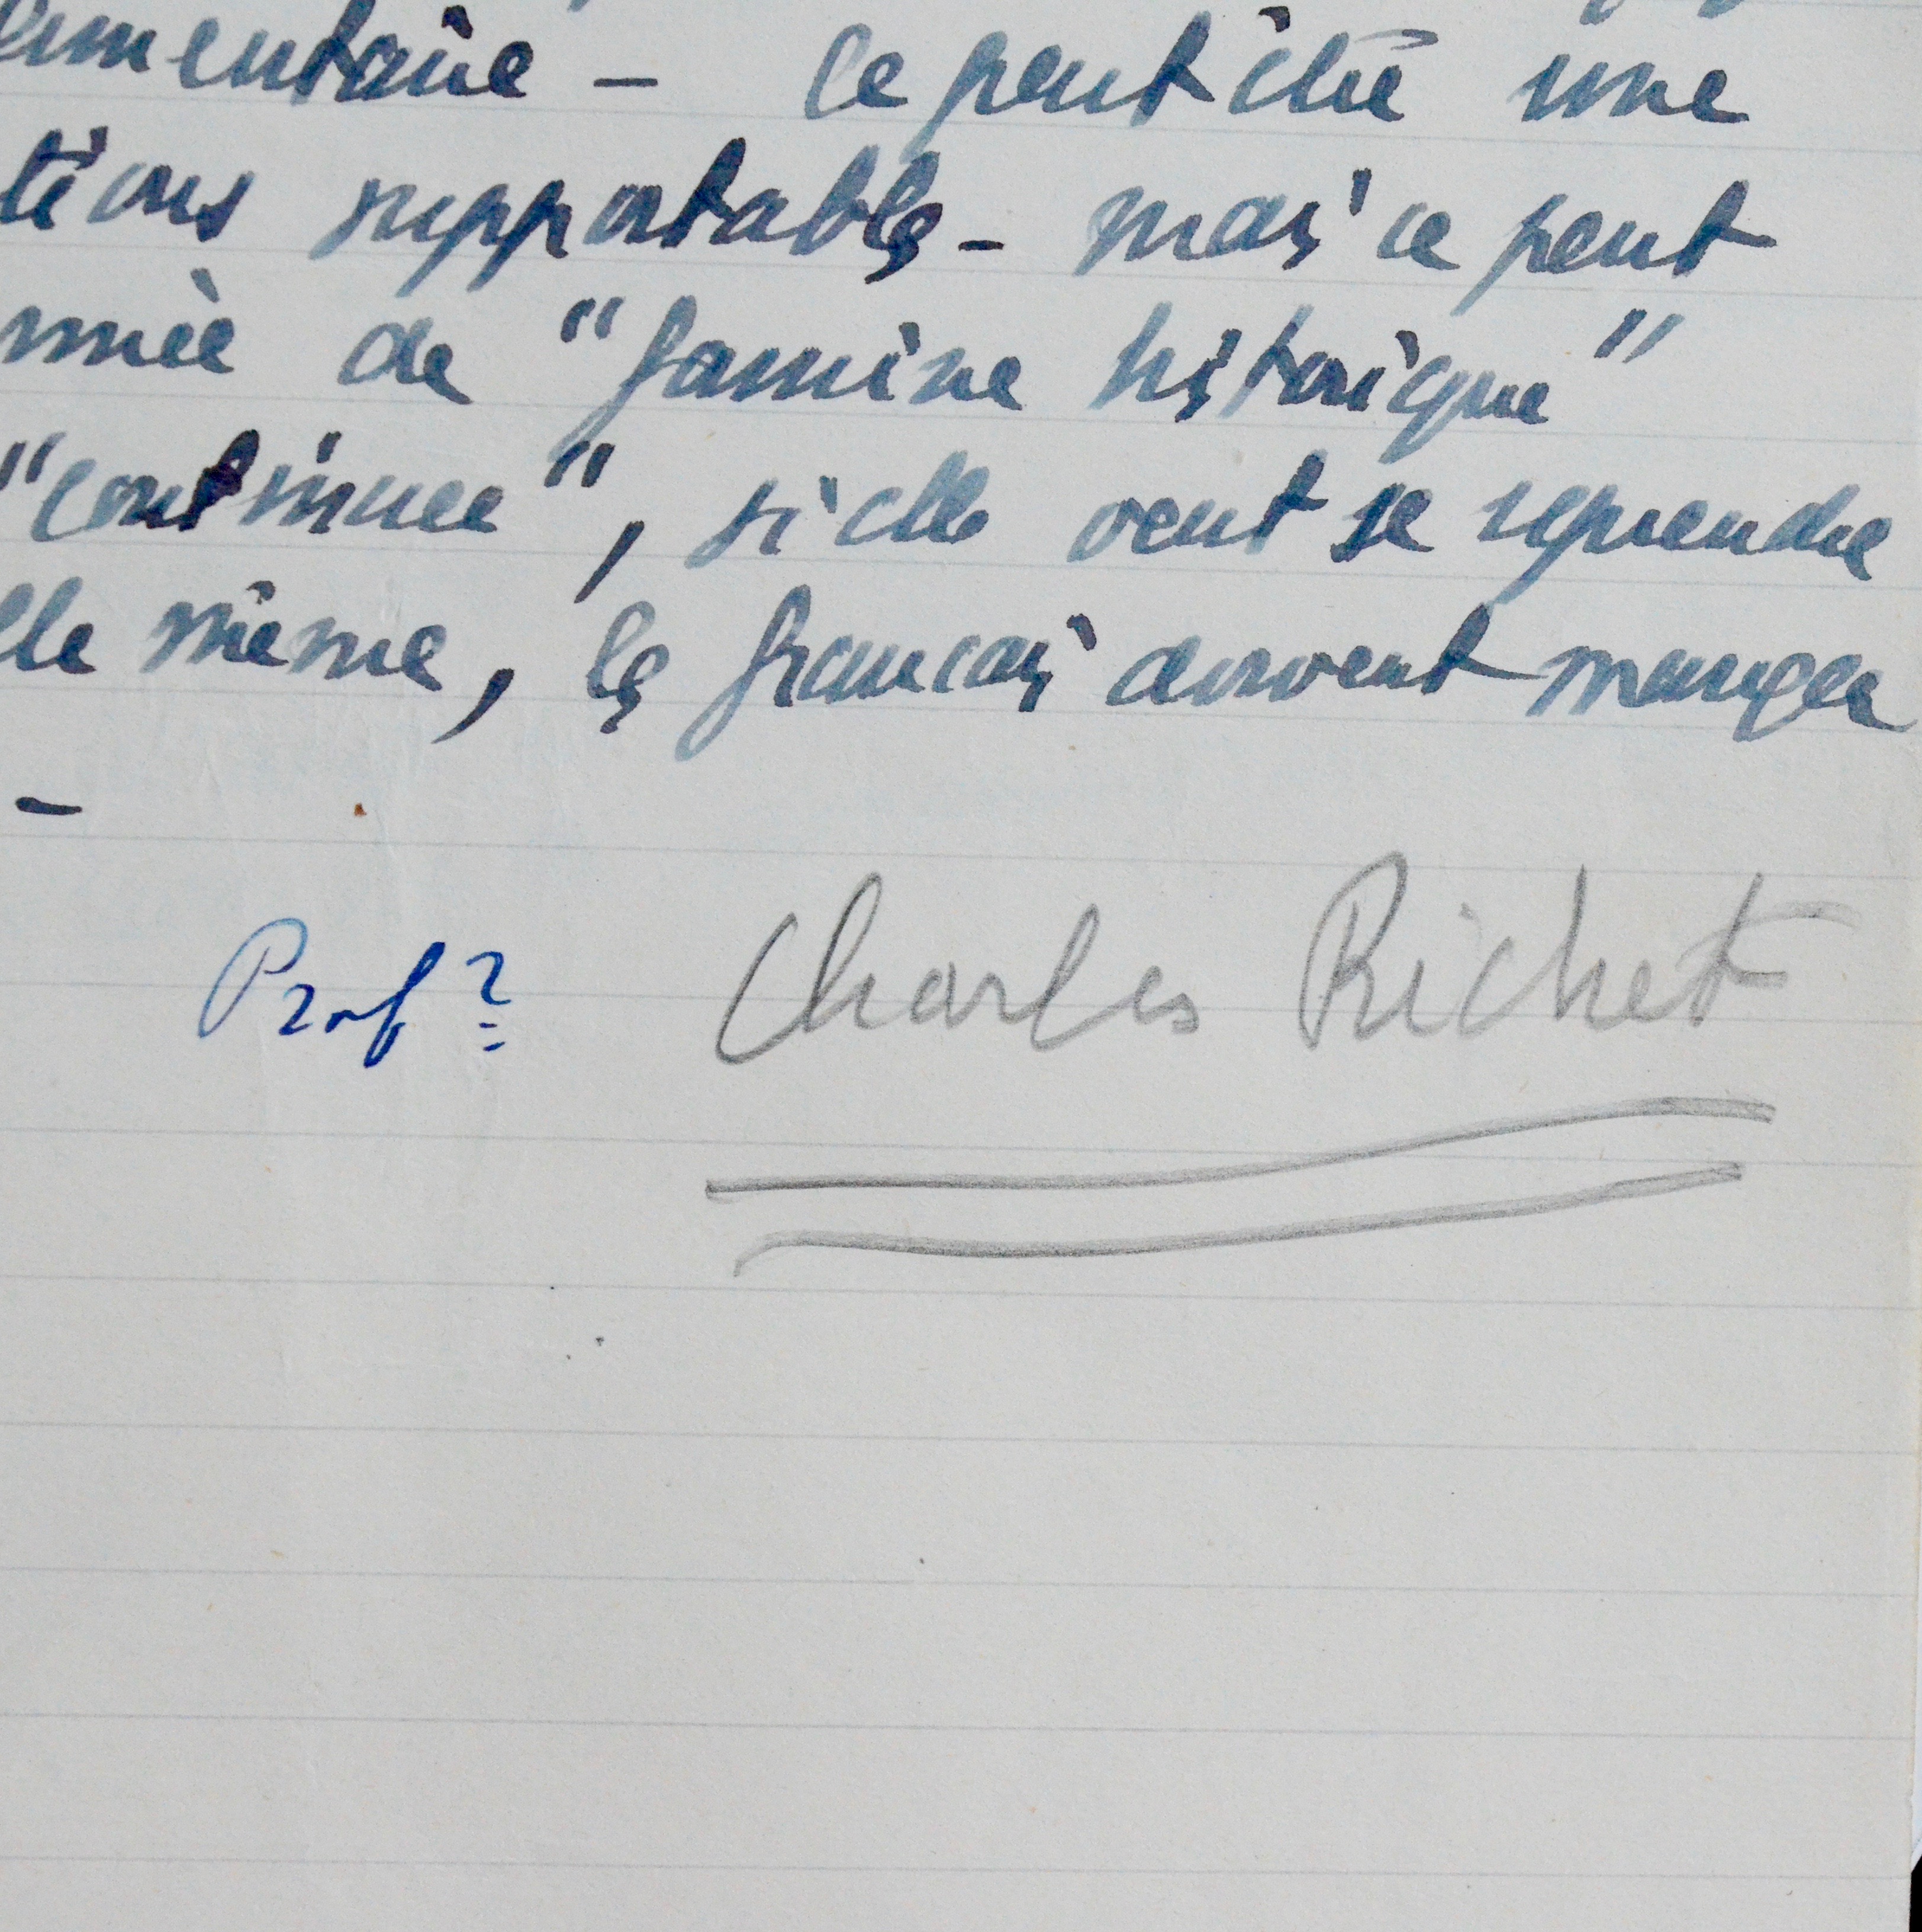 limentaire - Ce peut être une
tions supportables - mais ce peut
nnée de "famine historique"
"continuer", si elle veut se reprendre
lle même, les français doivent manger
-
Prof? Charles Richet